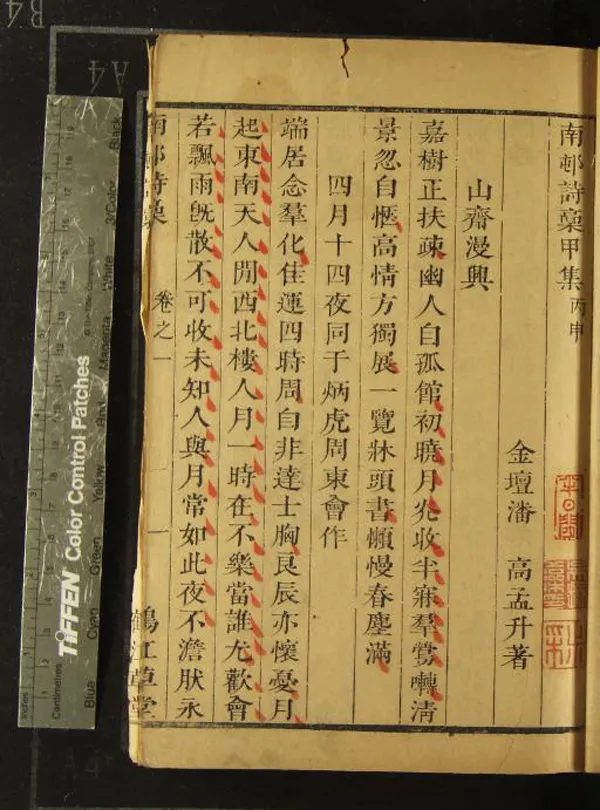 南邨詩稾甲集丙申
金壇潘　高孟升著
山齋漫興
嘉樹正扶疎幽人自孤館初曉月㳄收半寐羣鶯囀清
景忽自愜高情方獨展一覽牀頭書懶慢春塵滿
四月十四夜同于炳虎周東會作
端居念羣化佳運四時周自非達士胸良辰亦懷憂月
起東南天人閒西北樓人月一時在不樂當誰尤歡會
若飄雨旣散不可收未知人與月常如此夜不澹肰永
南邨詩稾
卷之一
一
鶴江草堂
TIFFEN Color Control Patches
Blue
Cyan
Green
Yellow
Red
Magenta
White
3/Color
Black
Centimetres
Inches
B4
A4
A4